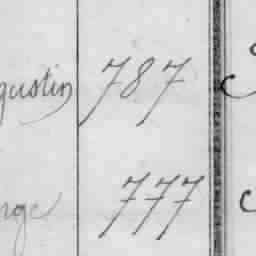 gustin 787
nge 777